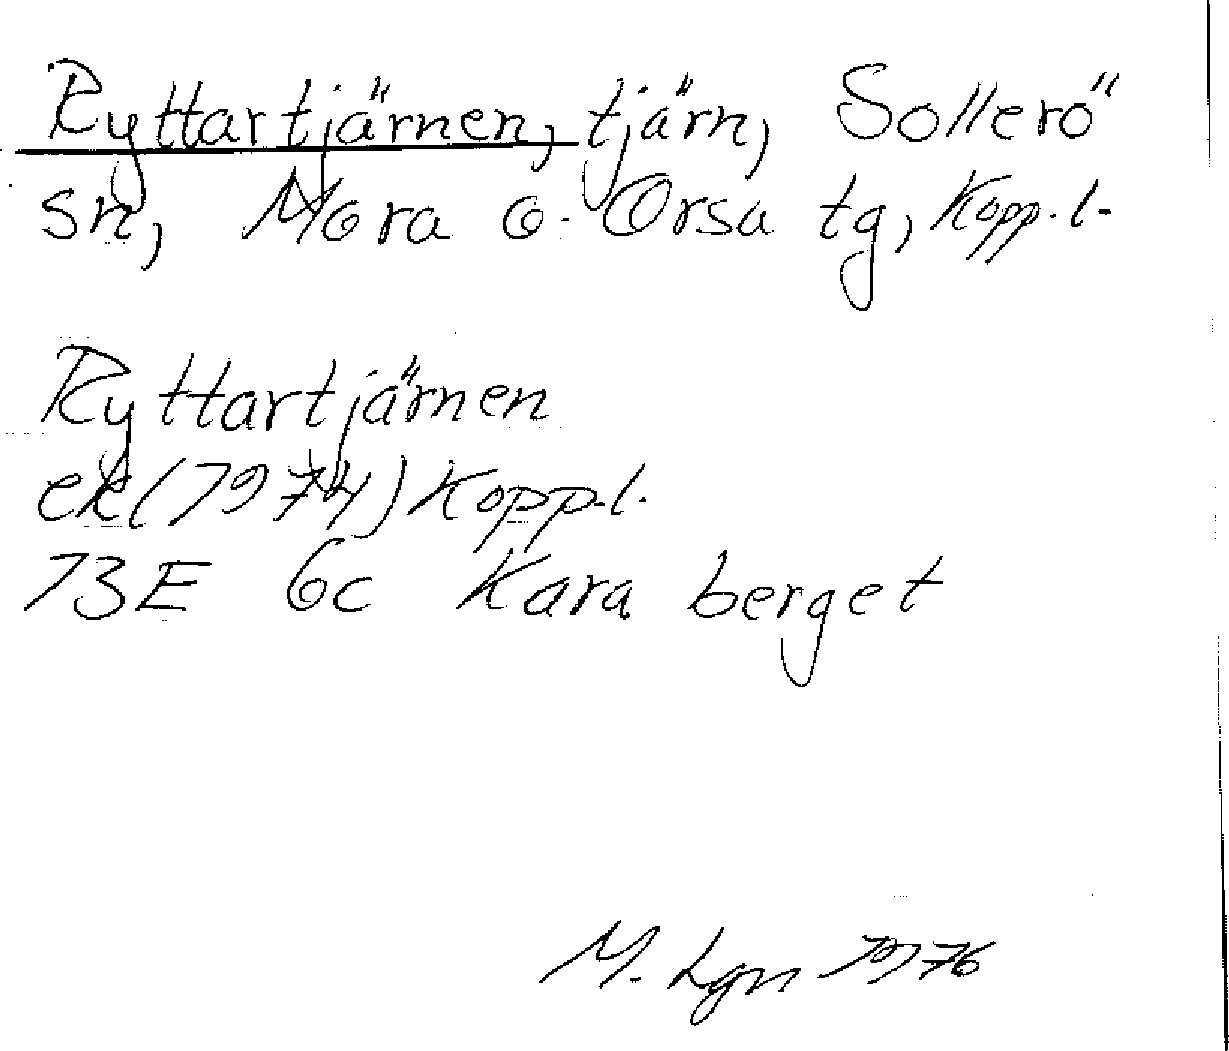 Ryttartjärnen, tjärn, Sollerö
sn, Mora o. Orsa tg, Kopp.l.
Ryttartjärnen
ek(1974) Kopp.l.
13E 6c Kara berget
M. Lgn 1976